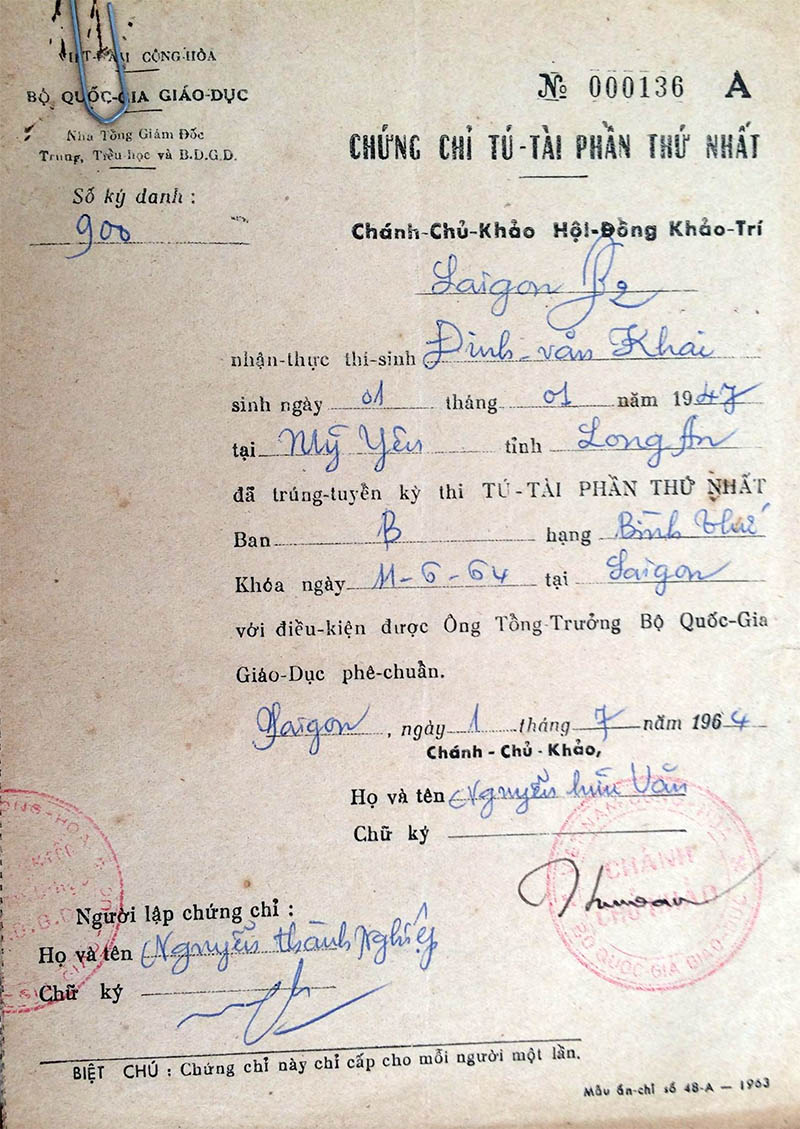 VIỆT-NAM CỘNG-HÒA
BỘ QUỐC-GIA GIÁO-DỤC
Nha Tổng Giám Đốc
Trung, Tiểu học và B.D.G.D.
Số ký danh :
900
№ 000136 A
CHỨNG CHỈ TÚ-TÀI PHẦN THỨ NHẤT
Chánh-Chủ-Khảo Hội-Đồng Khảo-Trí
Saigon B2
nhận-thực thí-sinh Đinh-văn Khai
sinh ngày 01 tháng 01 năm 1947
tại Mỹ Yên tỉnh Long An
đã trúng-tuyển kỳ thi TÚ-TÀI PHẦN THỨ NHẤT
Ban B hạng Bình thứ
Khóa ngày 11-6-64 tại Saigon
với điều-kiện được Ông Tổng-Trưởng Bộ Quốc-Gia
Giáo-Dục phê-chuẩn.
Saigon, ngày 1 tháng 7 năm 1964
Chánh-Chủ-Khảo,
Họ và tên Nguyễn hữu Văn
Chữ ký
VIỆT NAM CỘNG HÒA
CHÁNH
CHỦ KHẢO
BỘ QUỐC-GIA GIÁO
Người lập chứng chỉ :
Họ và tên Nguyễn thành Nghiệp
Chữ ký
BIỆT CHÚ : Chứng chỉ này chỉ cấp cho mỗi người một lần.
Mẫu ấn-chỉ số 48-A — 1963